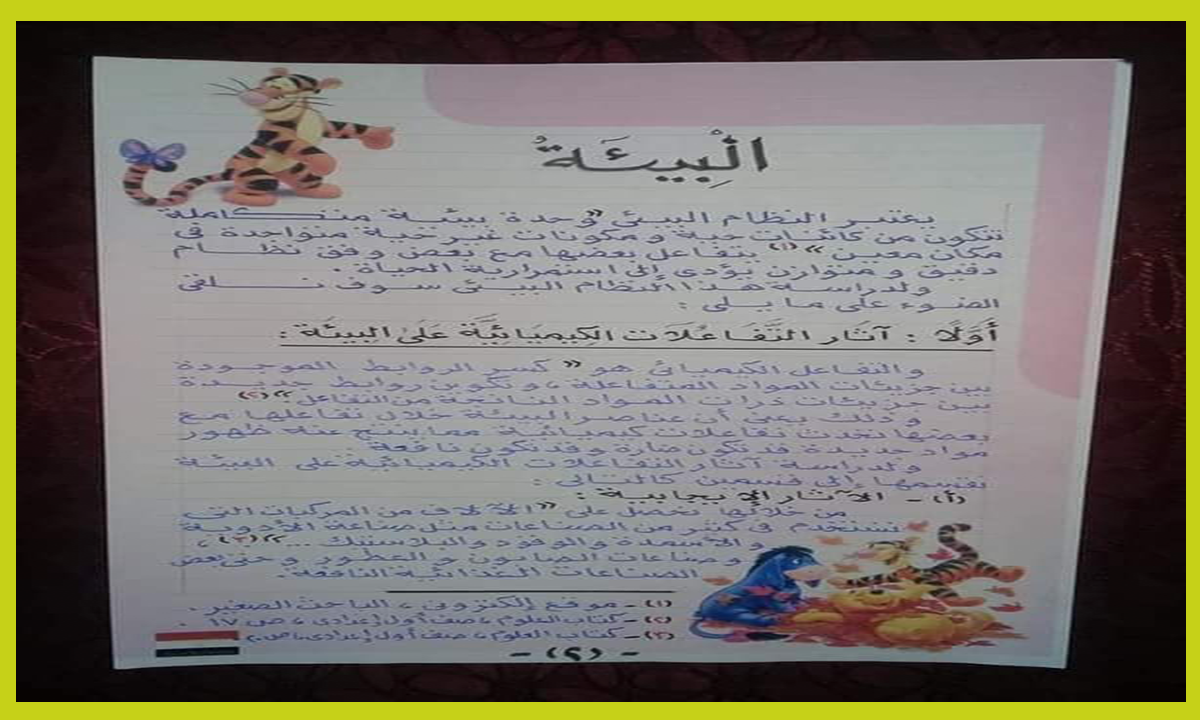 الْبِيئَةُ
يعتبر النظام البيئى «وحدة بيئية متكاملة
تتكون من كائنات حية و مكونات غير حية متواجدة فى
مكان معين» (١) يتفاعل بعضها مع بعض وفق نظام
دقيق و متوازن يؤدى إلى استمرارية الحياة.
ولدراسة هذا النظام البيئى سوف نلقى
الضوء على ما يلى :
أَوَّلًا : آثار التَّفَاعُلَات الكِيمِيَائِيَّة عَلَى البيئَة :
والتفاعل الكيميائى هو « كسر الروابط الموجودة
بين جزيئات المواد المتفاعلة ، وتكوين روابط جديدة
بين جزيئات ذرات المواد الناتجة من التفاعل » (٢)
وذلك يعنى أن عناصر البيئة خلال تفاعلها مع
بعضها تحدث تفاعلات كيميائية مما ينتج عنه ظهور
مواد جديدة قد تكون ضارة وقد تكون نافعة
ولدراسة آثار التفاعلات الكيميائية على البيئة
نقسمها إلى قسمين كالتالى :
(أ) - الآثار الإيجابية :
من خلالها نحصل على « الآلاف من المركبات التى
تستخدم فى كثير من الصناعات مثل صناعة الأدوية
و الأسمدة والوقود والبلاستيك ... » (٣) ،
و صناعات الصابون و العطور وحتى بعض
الصناعات الغذائية النافعة.
(١) - موقع إلكترونى ، الباحث الصغير .
(٢) - كتاب العلوم ، صف أول إعدادى ، ص ١٧ .
(٣) - كتاب العلوم ، صف أول إعدادى ،
- (٢) -